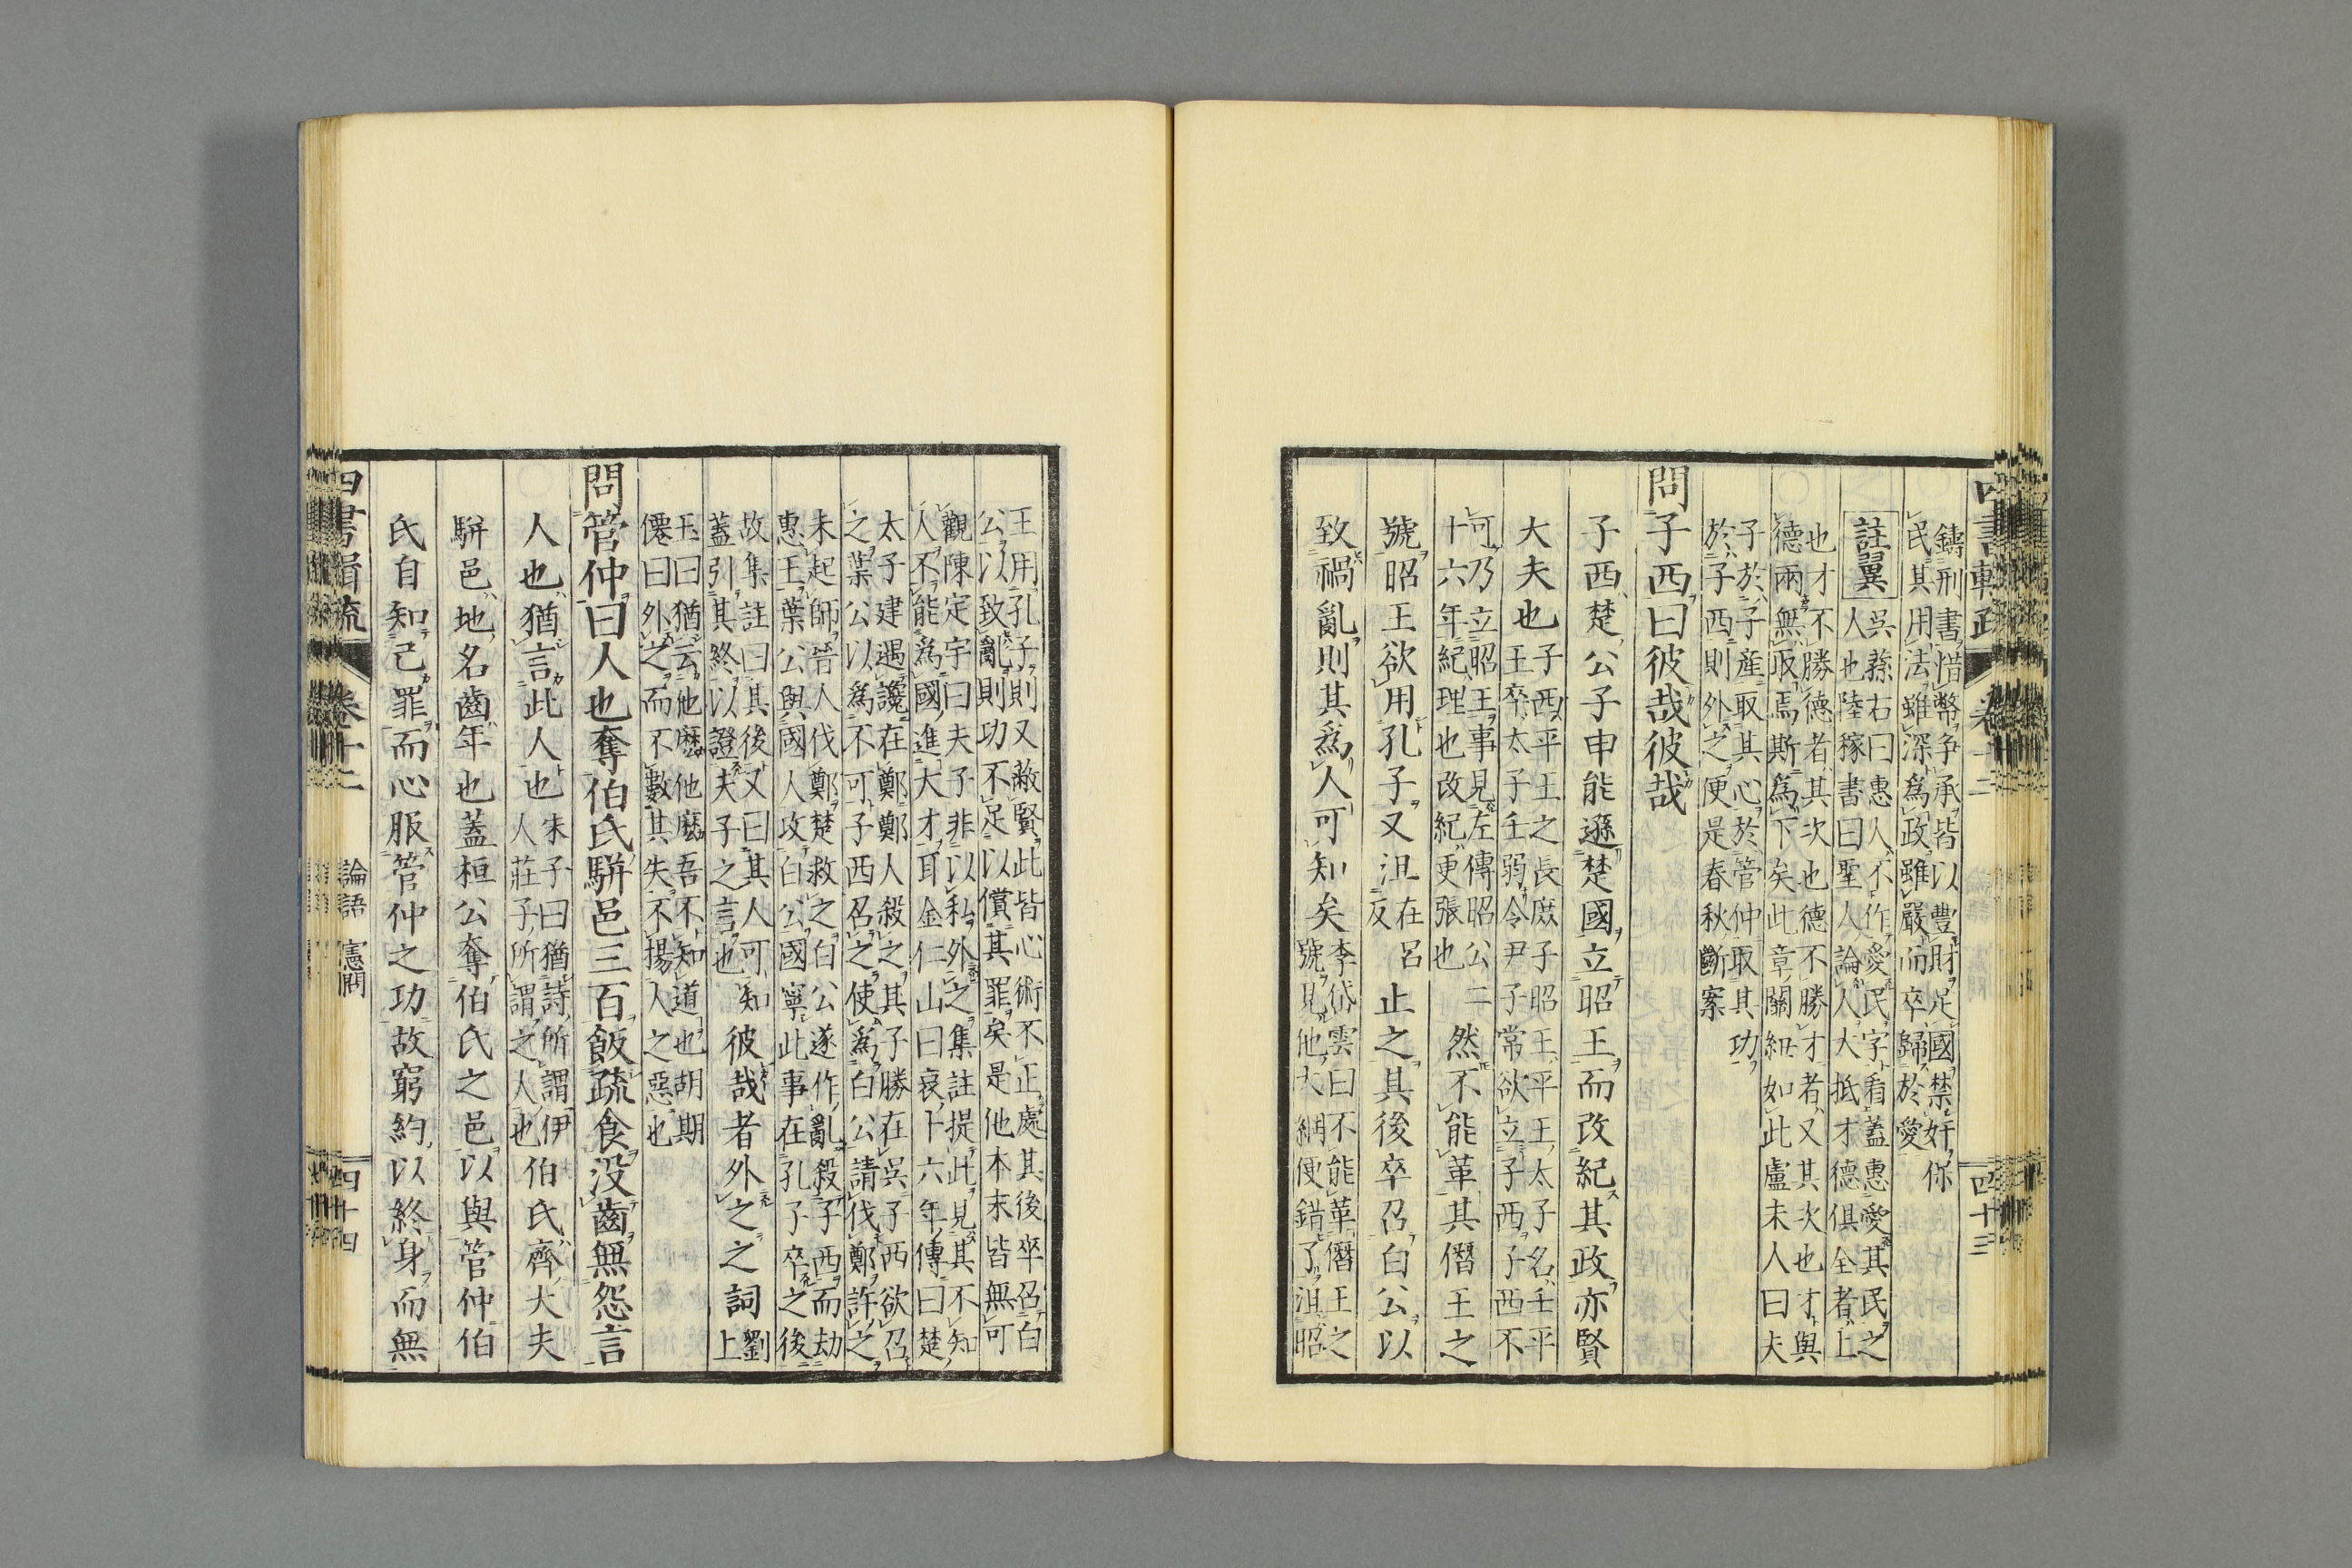 鑄刑書惜幣争承皆以豊財足國禁奸保
民其用法雖深為政雖嚴而卒歸於愛
註翼
吳蓀右曰惠人不作愛民字看蓋惠愛其民之
人也陸稼書曰聖人論人大抵才德俱全者上
也才不勝德者其次也德不勝才者又其次也才與
德兩無取焉斯為下矣此章關紐如此盧未人曰夫
子於子産取其心於管仲取其功
於子西則外之便是春秋斷案
問子西曰彼哉彼哉
子西楚公子申能遜楚國立昭王而改紀其政亦賢
大夫也
子西平王之長庶子昭王平王太子名壬平
王卒太子壬弱令尹子常欲立子西子西不
可乃立昭王事見左傳昭公二
十六年紀理也改紀更張也
然不能革其僭王之
號昭王欲用孔子又沮
在呂
反
止之其後卒召白公以
致禍亂則其為人可知矣
李岱雲曰不能革僭王之
號見他大綱便錯了沮昭
王用孔子則又蔽賢此皆心術不正處其後卒召白
公以致亂則功不足以償其罪矣是他本末皆無可
觀陳定宇曰夫子非以私外之集註提此見其不知
人不能為國進大才耳金仁山曰哀十六年傳曰楚
太子建遇讒在鄭鄭人殺之其子勝在吳子西欲召
之葉公以為不可子西召之使為白公請伐鄭許之
未起師晉人伐鄭楚救之白公遂作亂殺子西而劫
惠王葉公與國人攻白公國寧此事在孔子卒之後
故集註曰其後又曰其人可知
蓋引其終以證夫子之言也
彼哉者外之之詞
劉上
玉曰猶云他麼他麼吾不知道也胡期
僊曰外之而不數其失不揚人之惡也
問管仲曰人也奪伯氏駢邑三百飯疏食没齒無怨言
人也猶言此人也
朱子曰猶詩所謂伊
人莊子所謂之人也
伯氏齊大夫
駢邑地名齒年也蓋桓公奪伯氏之邑以與管仲伯
氏自知己罪而心服管仲之功故窮約以終身而無
卷十二
論語
憲問
四十三
四十四